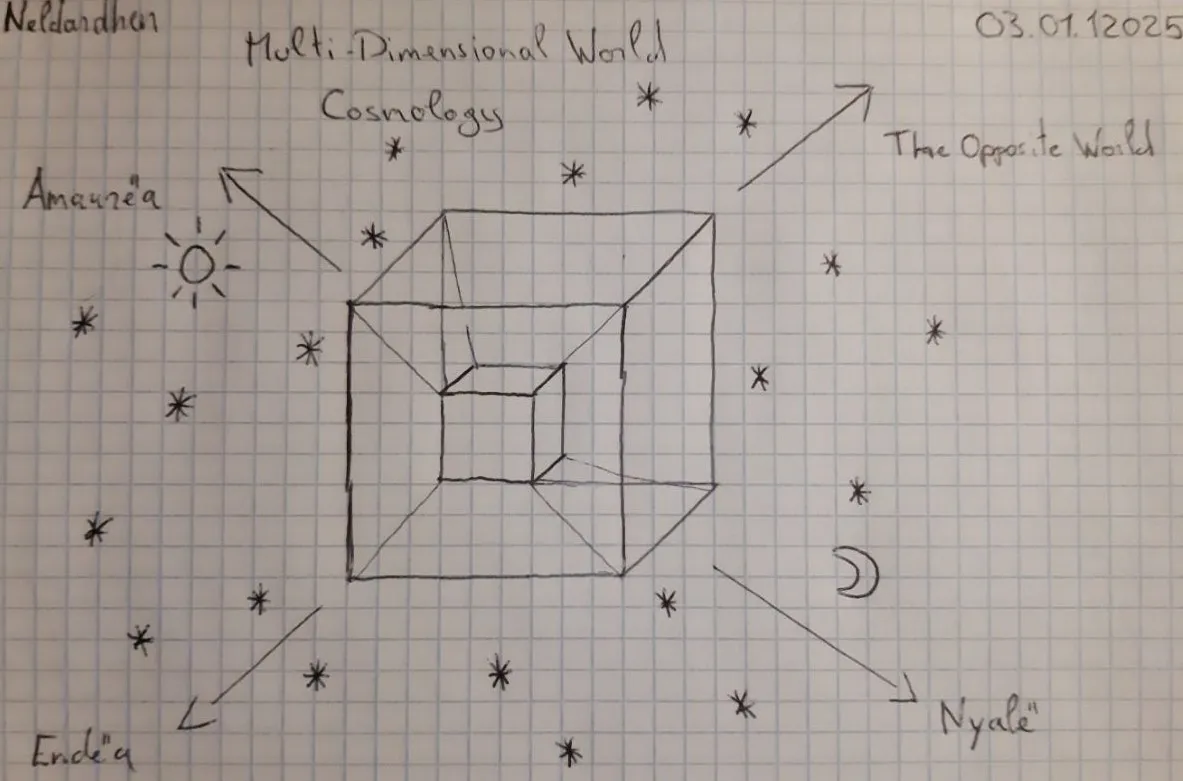 Neldandhan
03.01.12025
Multi-Dimensional World
Cosmology
The Opposite World
Amaurë"a
Endë"a
Nyalë"